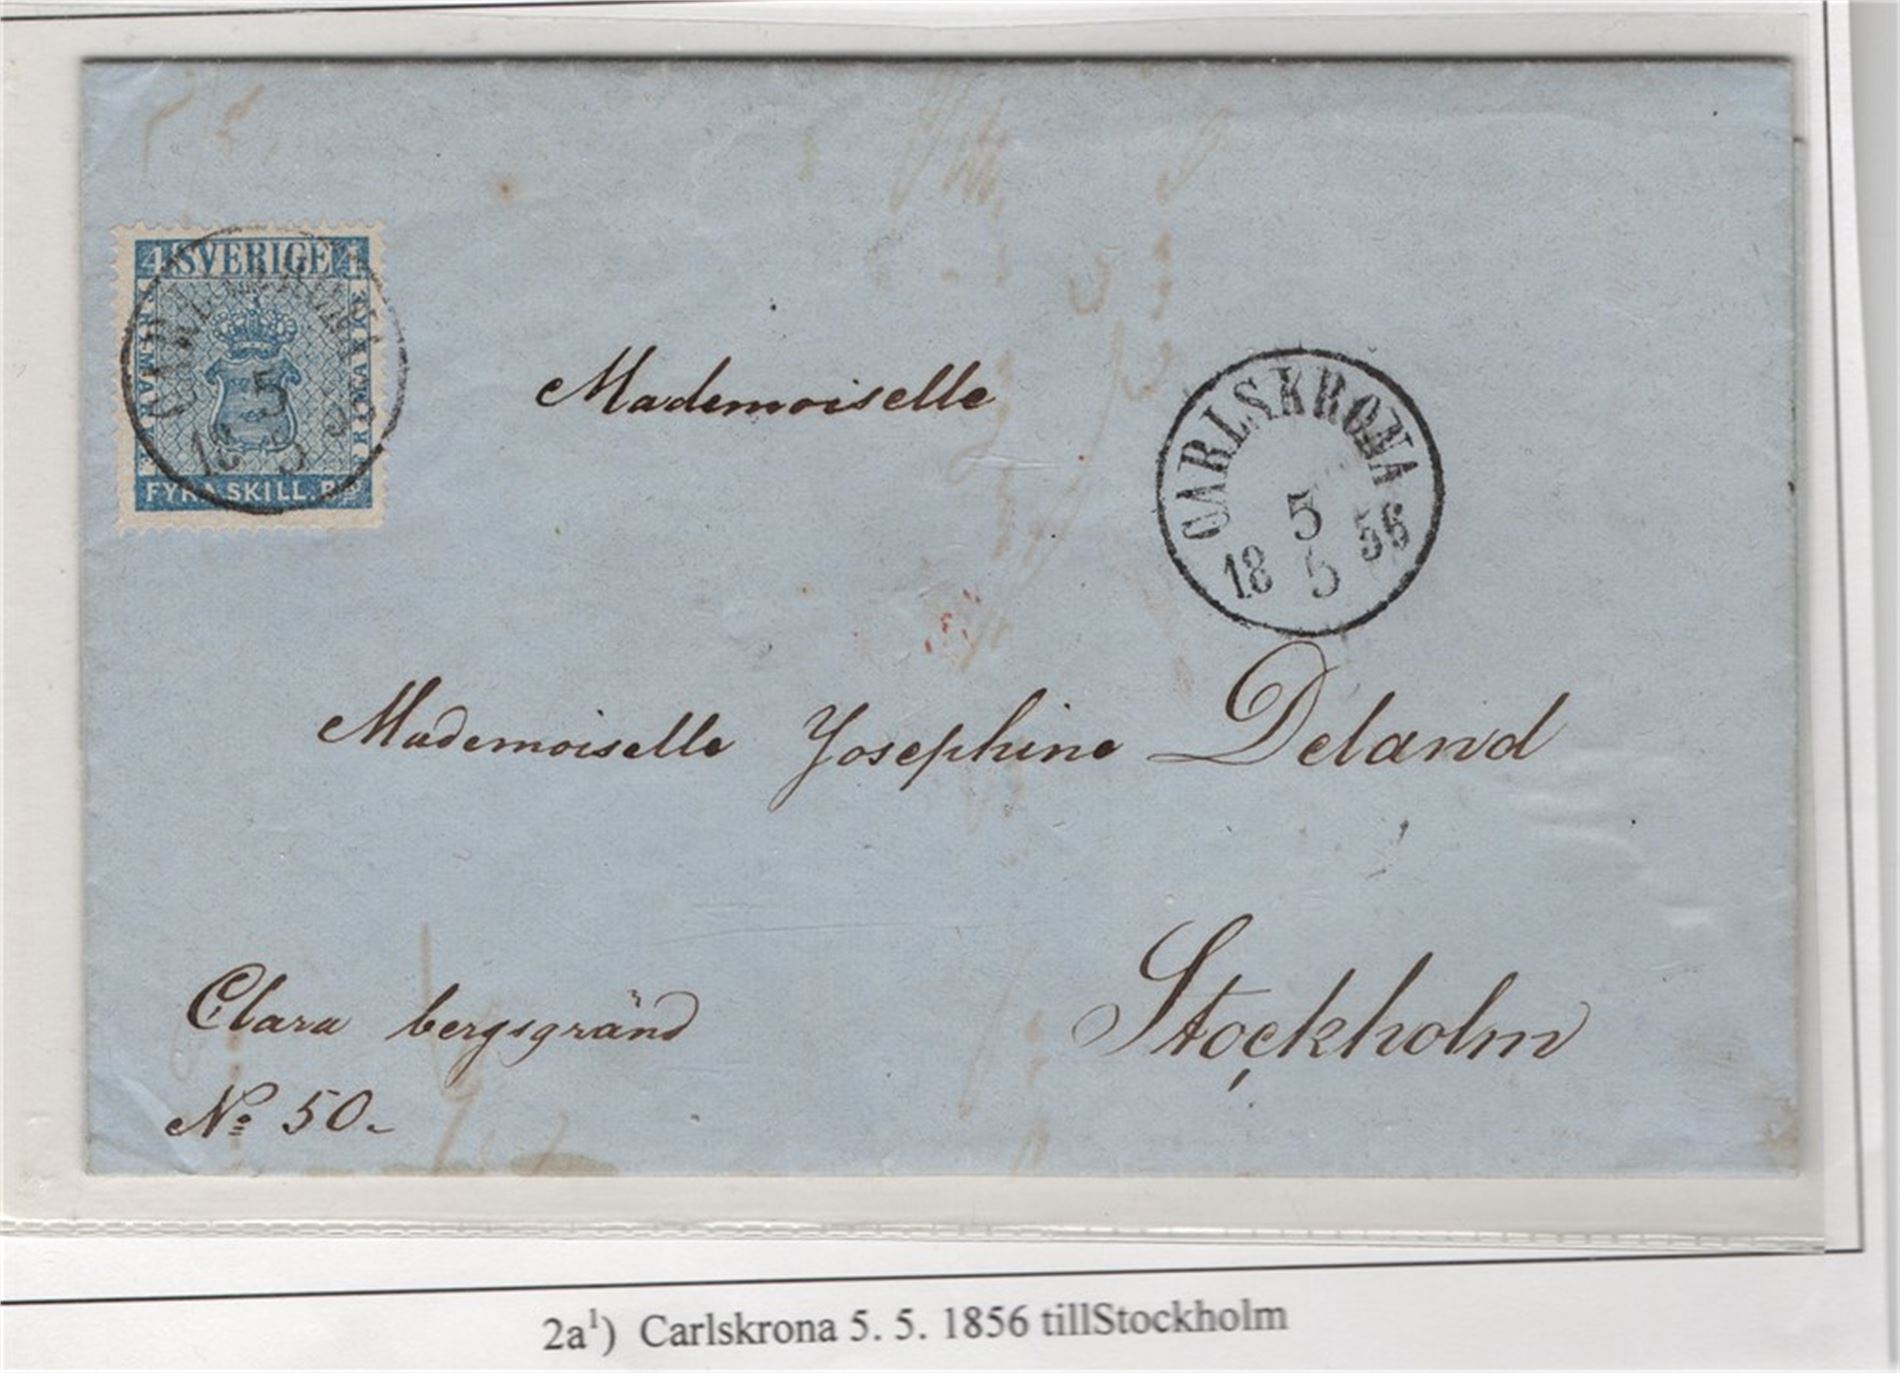 4 SVERIGE 4
FRIMÄRKE
FRIMÄRKE
FYRA SKILL. Bco
CARLSKRONA
5
18 5
Mademoiselle
CARLSKRONA
5
18 5 56
Mademoiselle Josephine Deland
Stockholm
Clara bergsgränd
No 50.
2a¹) Carlskrona 5. 5. 1856 tillStockholm